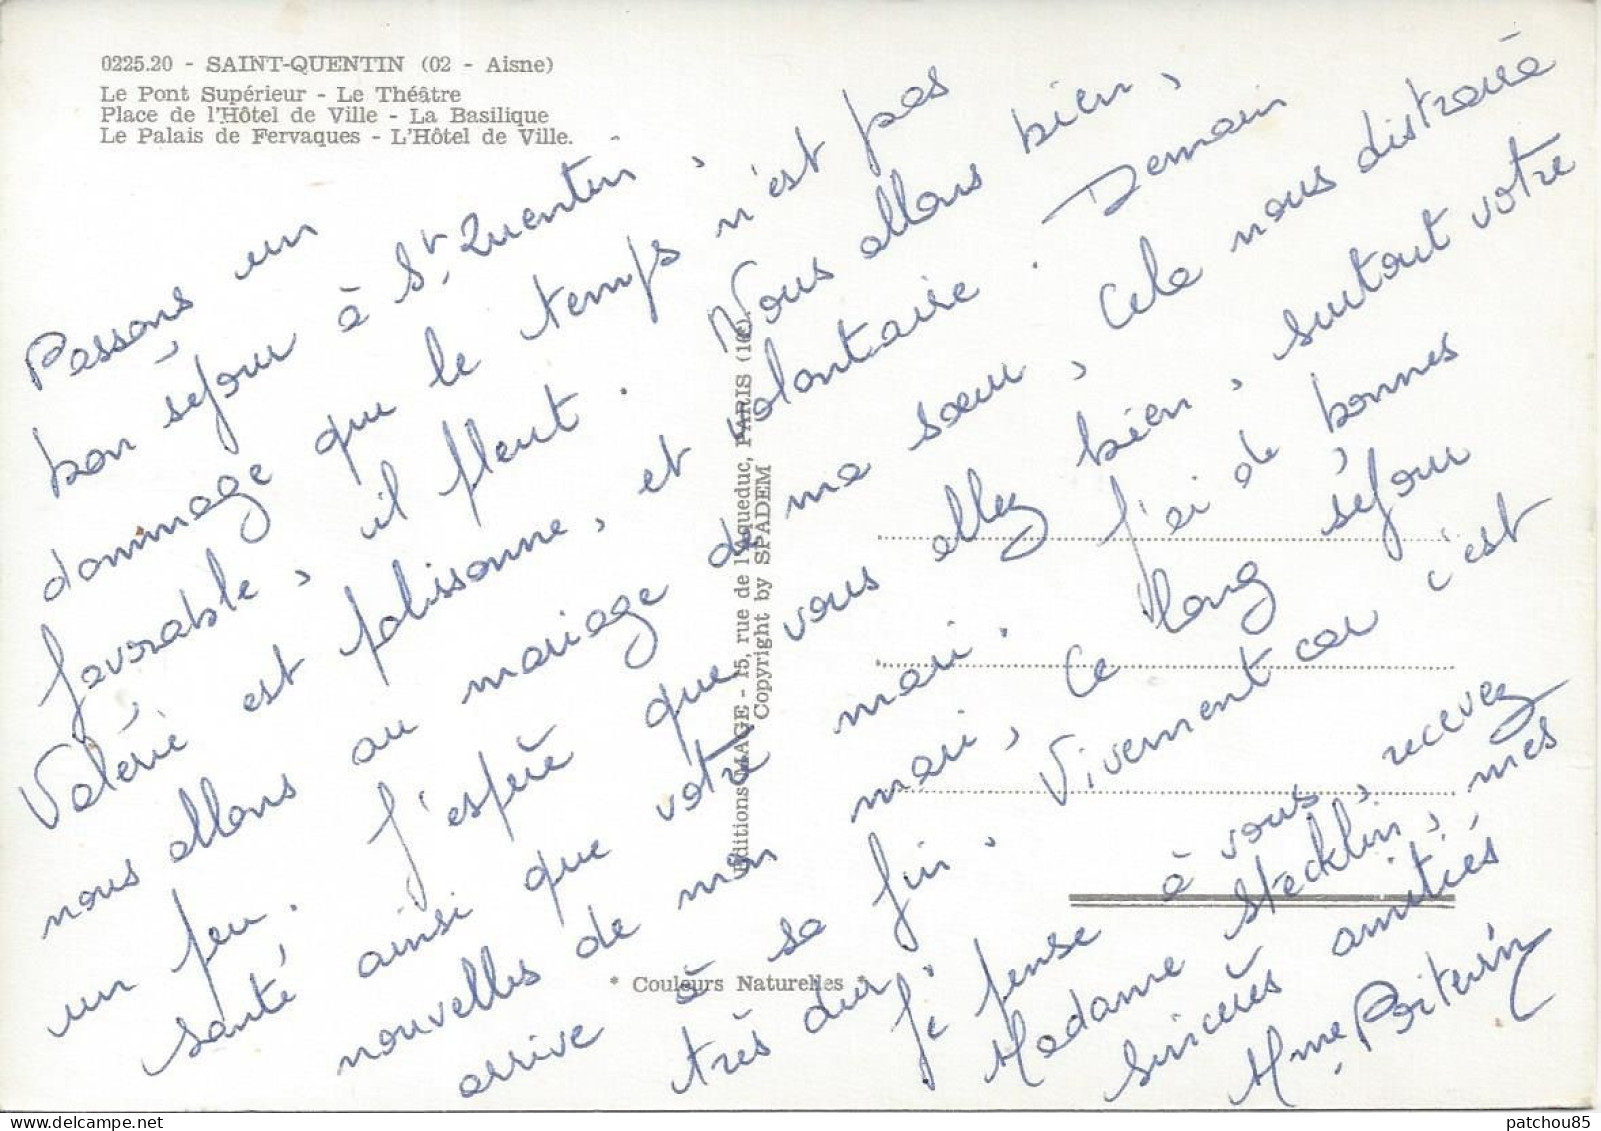 0225.20 - SAINT-QUENTIN (02 - Aisne)
Le Pont Supérieur - Le Théâtre
Place de l'Hôtel de Ville - La Basilique
Le Palais de Fervaques - L'Hôtel de Ville.
Passons un
bon séjour à St Quentin,
dommage que le temps n'est pas
favorable, il pleut. Nous allons bien,
Valérie est polissonne, et volontaire. Demain
nous allons au mariage de ma sœur, cela nous distraira
un peu. J'espère que vous allez bien, surtout votre
santé ainsi que votre mari. J'ai de bonnes
nouvelles de mon mari, ce long séjour
arrive à sa fin. Vivement car c'est
très dur. Je pense à vous, recevez
Madame Stecklin, mes
sincères amitiés
Mme
Editions MAGE - 15, rue de l'Aqueduc, PARIS (10e).
Copyright by SPADEM
* Couleurs Naturelles *
patchou85